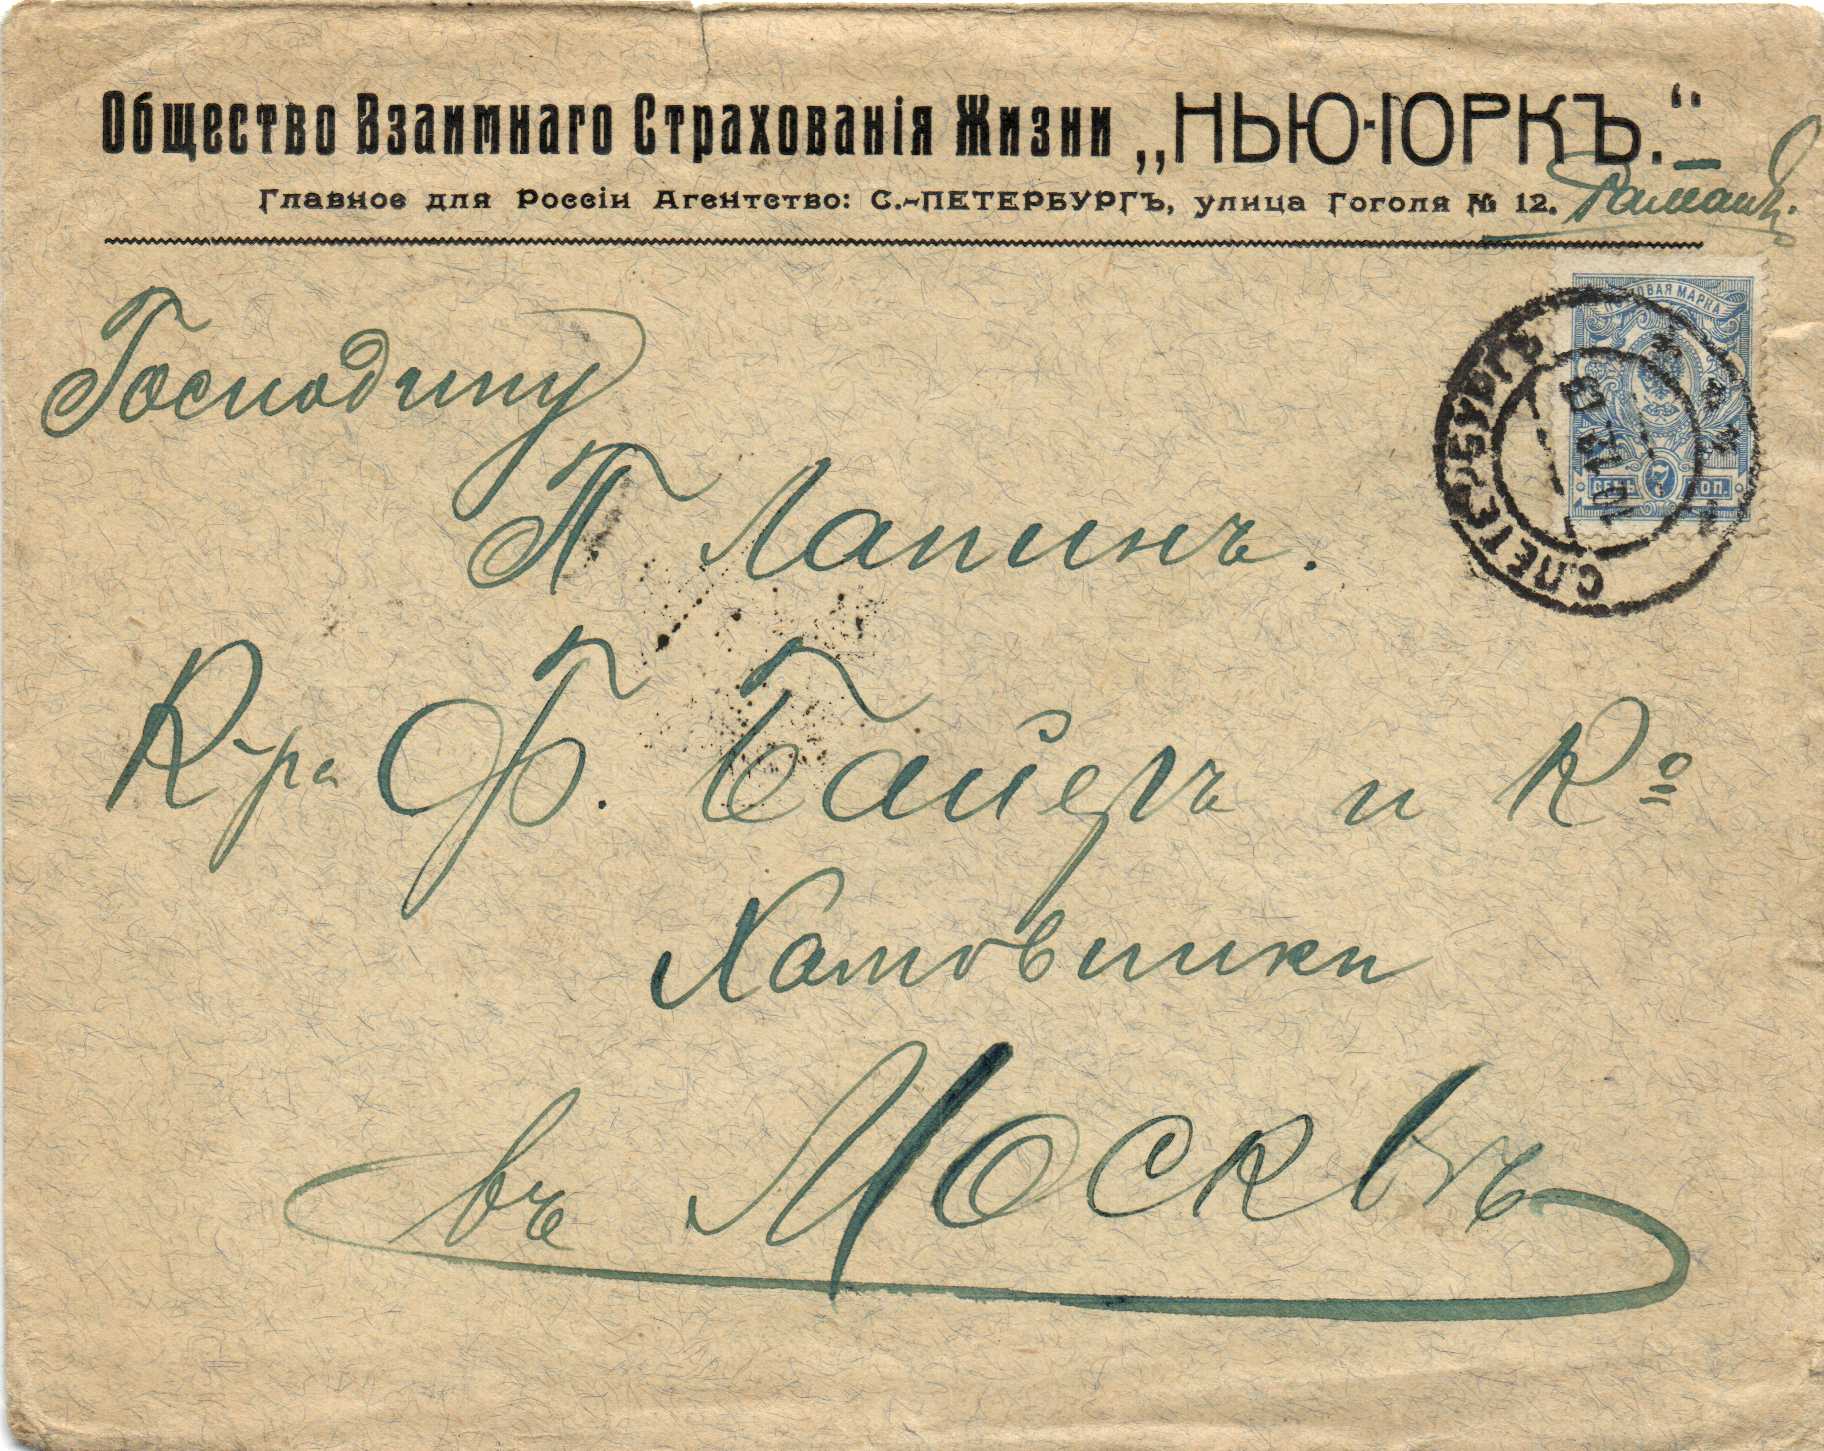 Общество Взаимнаго Страхованія Жизни „НЬЮ-ІОРКЪ.“
Главное для Россіи Агентство: С.-ПЕТЕРБУРГЪ, улица Гоголя № 12.
ПОЧТОВАЯ МАРКА
СЕМЬ 7 КОП.
С.ПЕТЕРБУРГЪ
Господину
П Лапинъ.
К-ра Ф. Байеръ и Кº
Хамовники
въ Москвъ